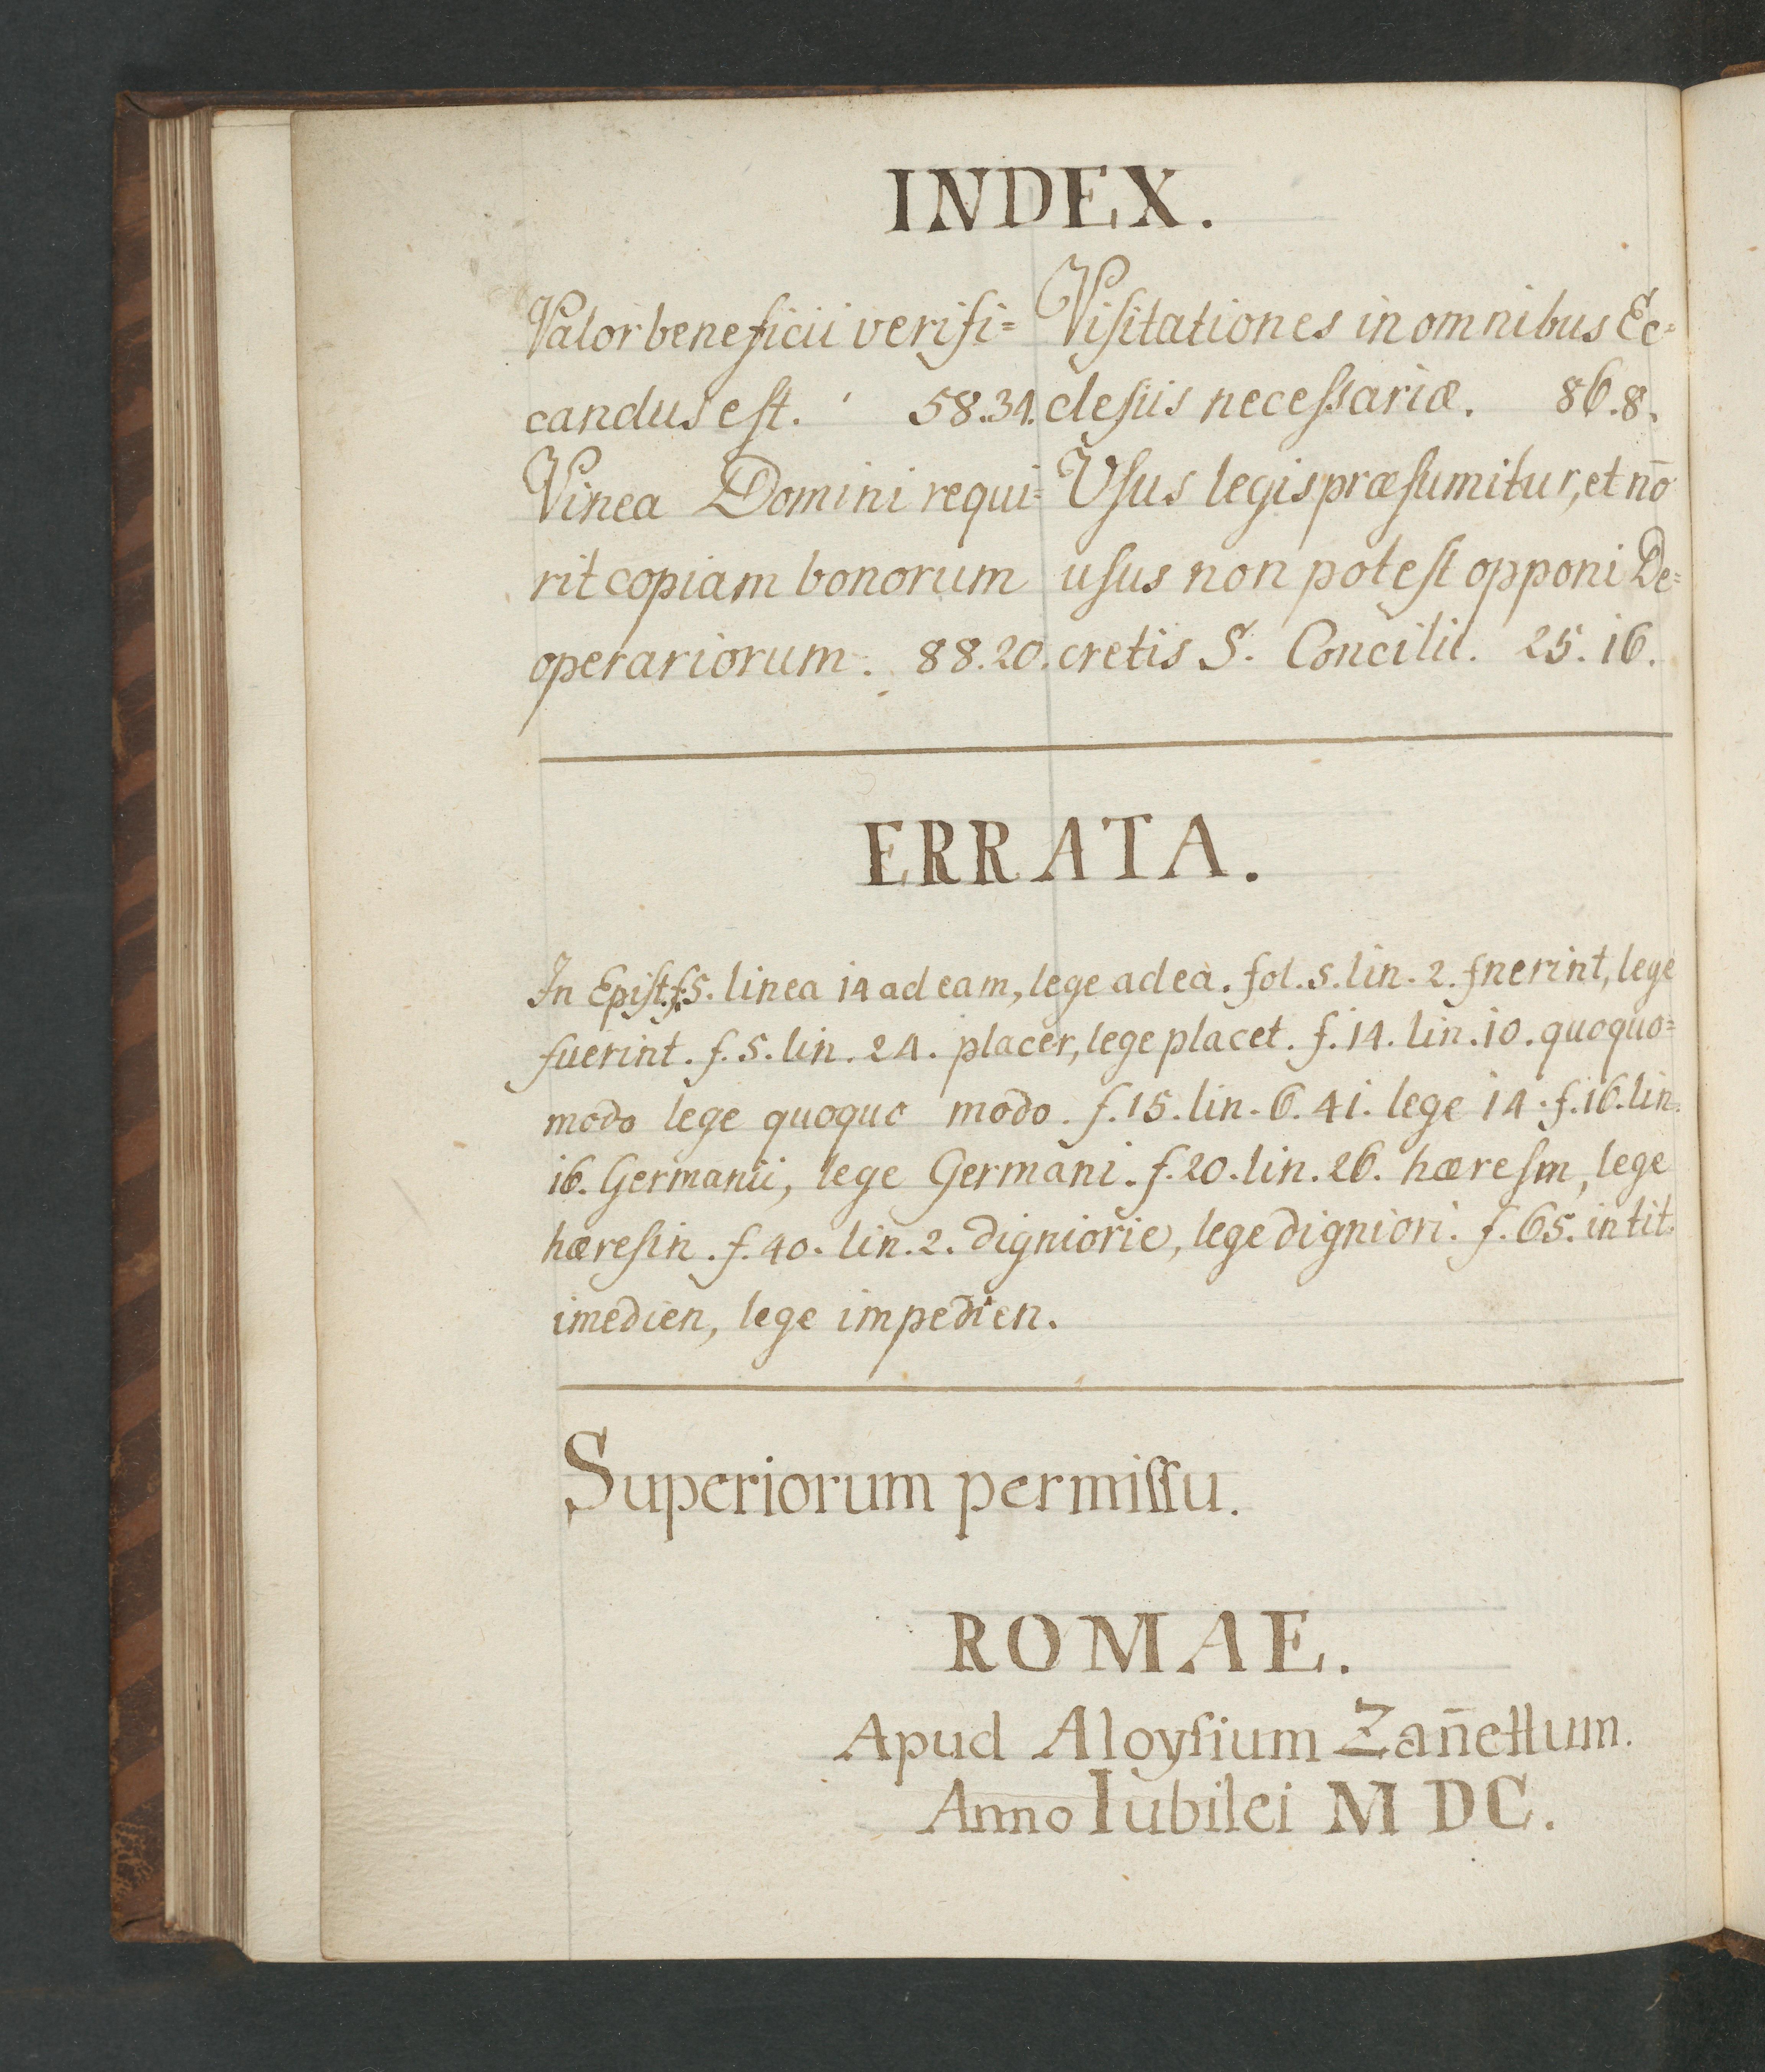 INDEX.
Valor beneficii verifi=
candus est. 58.34.
Vinea Domini requi=
rit copiam bonorum
operariorum. 88.20.
Visitationes in omnibus Ec=
clesiis necessariæ. 86.8.
Usus legis præsumitur, et nō
usus non potest opponi De=
cretis S. Concilii. 25. 16.
ERRATA.
In Epist. f. 5. linea 14 ad eam, lege ad ea. fol. 5. lin. 2. fnerint, lege
fuerint. f. 5. lin. 24. placer, lege placet. f. 14. lin. 10. quoquo=
modo lege quoquo modo. f. 15. lin. 6. 41. lege 14. f. 16. lin.
16. Germanii, lege Germani. f. 20. lin. 26. hæresm, lege
hæresin. f. 40. lin. 2. digniorie, lege digniori. f. 65. in tit.
imedien, lege impedien.
Superiorum permissu.
ROMAE.
Apud Aloysium Zan̄ettum.
Anno Iubilei M DC.